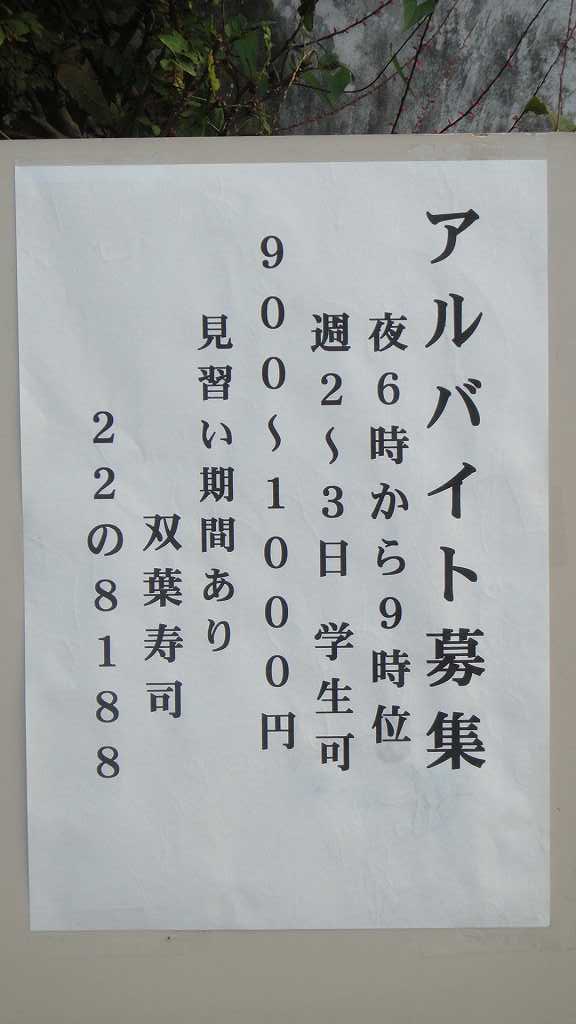 アルバイト募集
夜6時から9時位
週2～3日 学生可
900～1000円
見習い期間あり
双葉寿司
22の8188